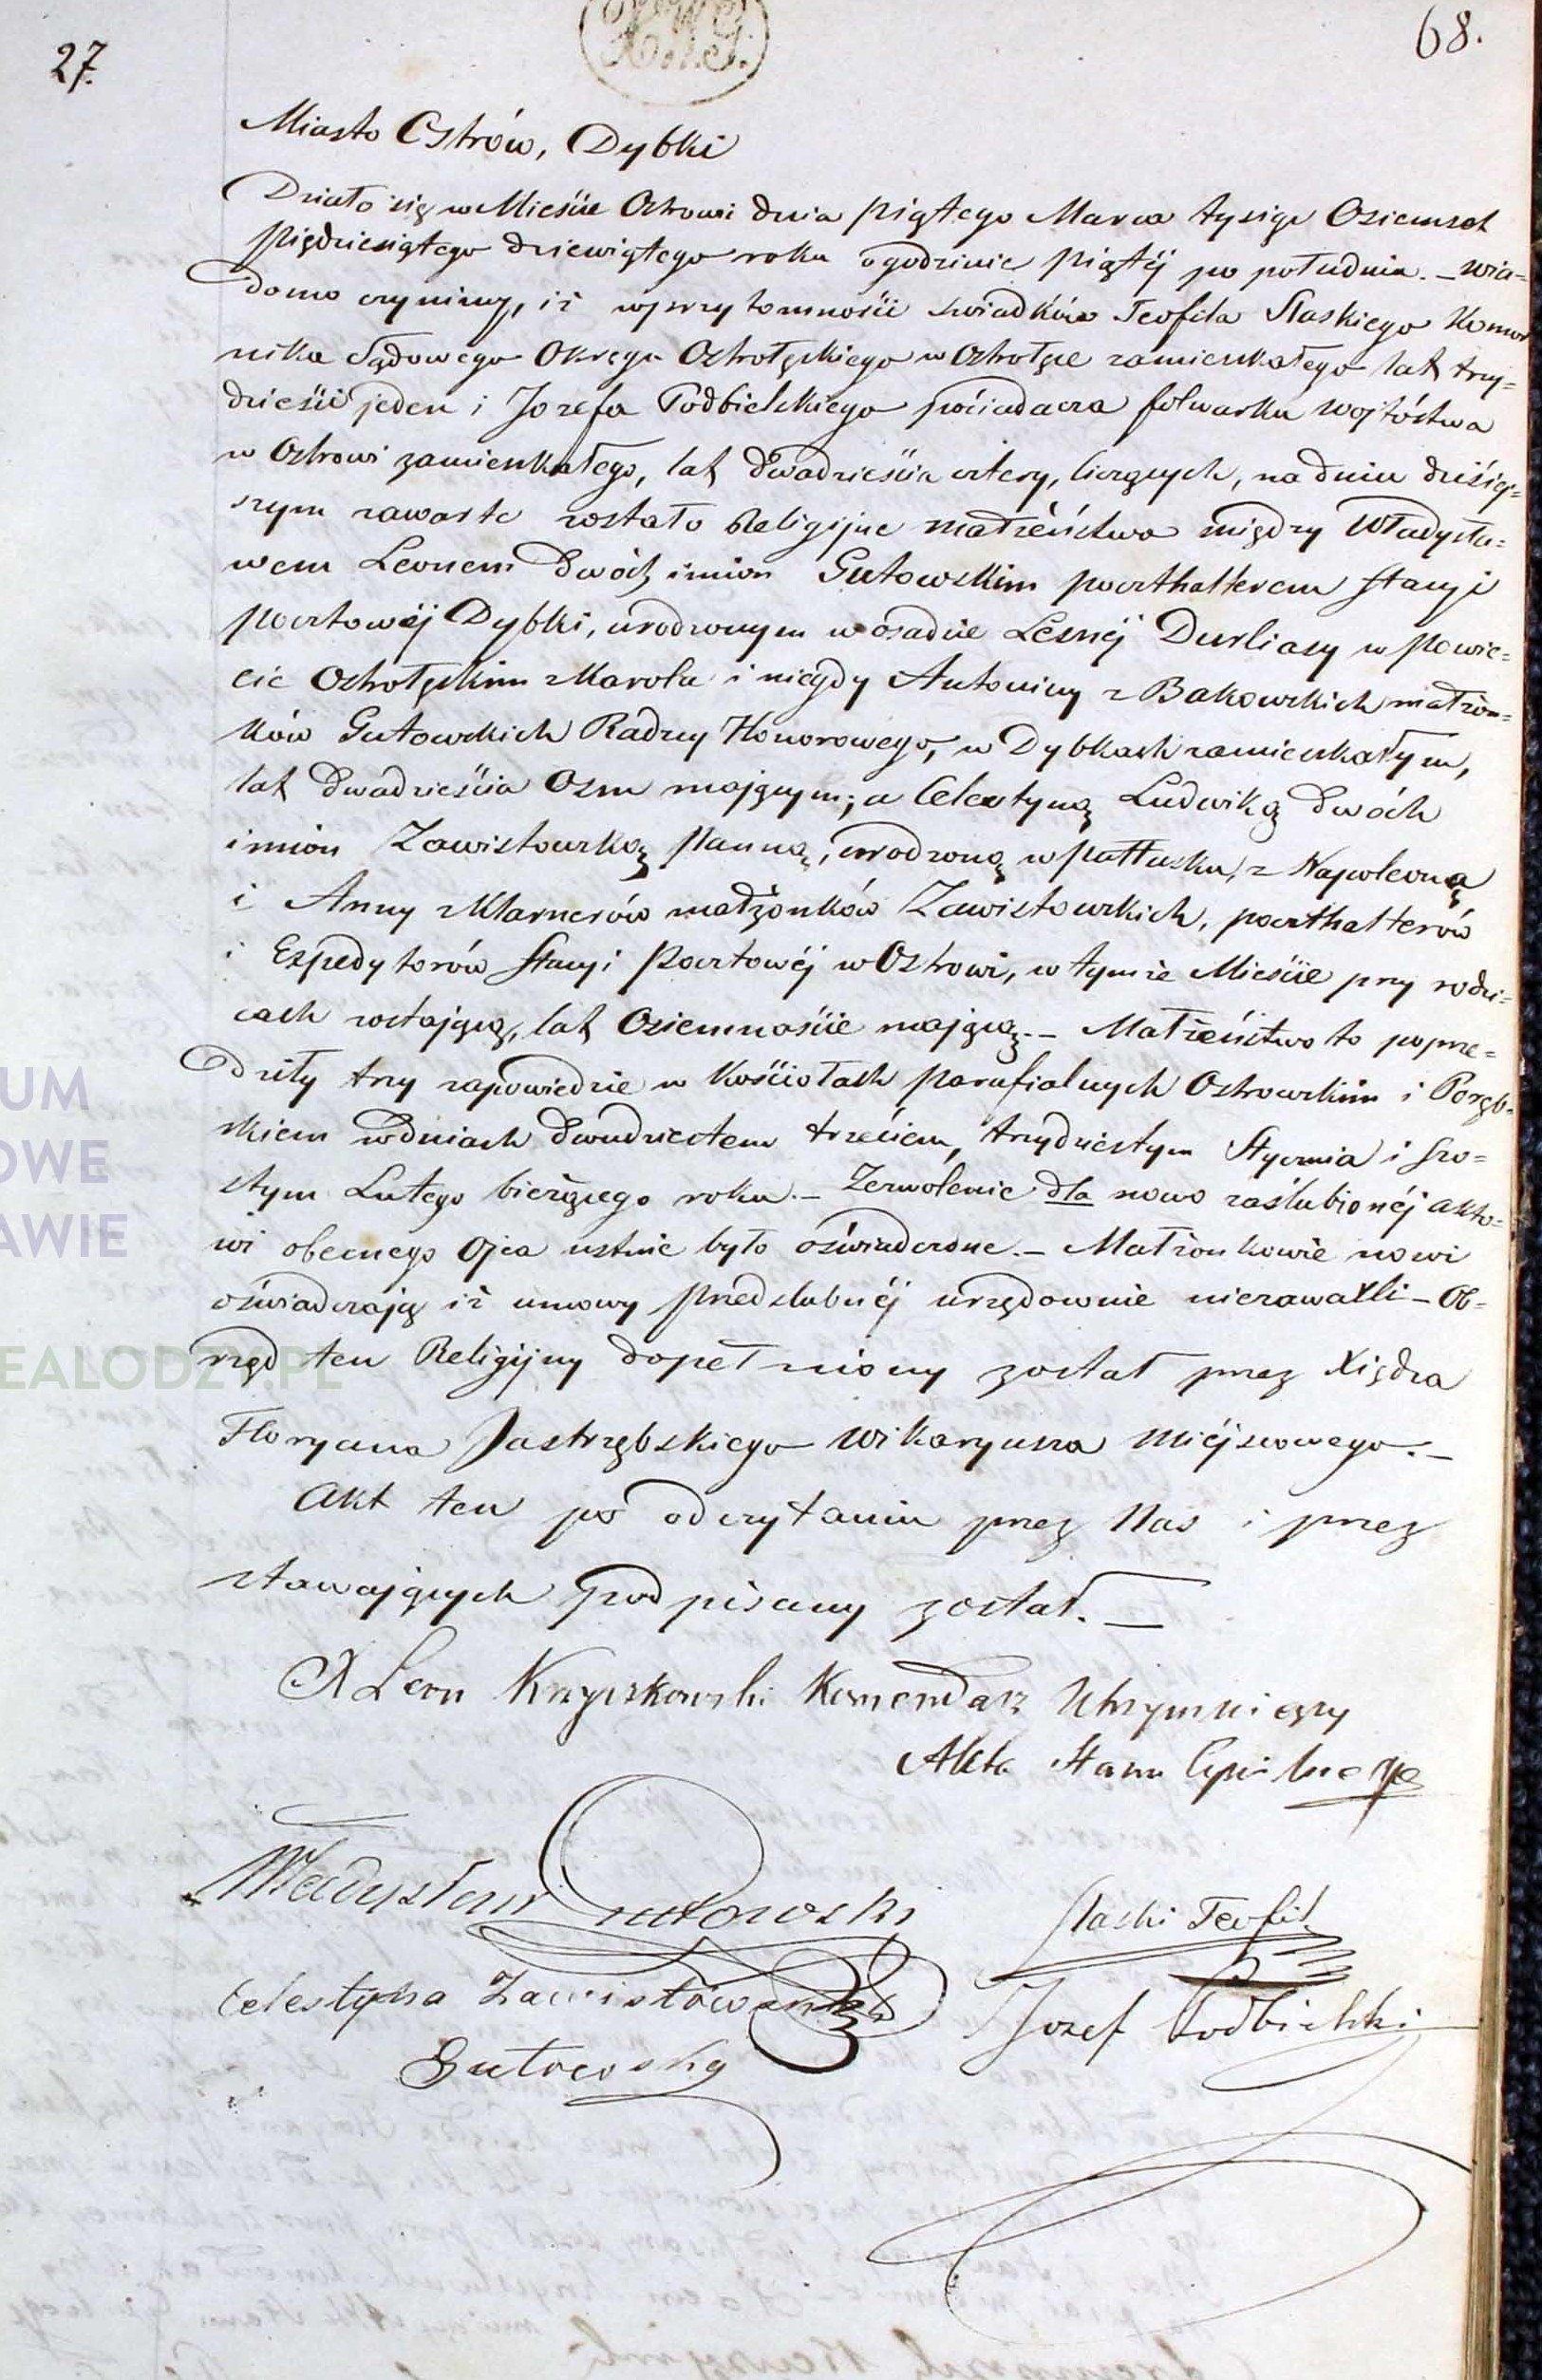 68.
27.
Miasto Ostrów, Dybki
Działo się w Mieście Ostrowi dnia piątego Marca tysiąc Osiemset
pięćdziesiątego dziewiątego roku o godzinie piątéj po południu. – wia=
domo czynimy, iż w przytomności świadków Teofila Slaskiego Komor
nika Sądowego Okręgu Ostrołęckiego w Ostrołęce zamieszkałego lat trzy=
dzieści jeden i Jozefa Podbielskiego posiadacza folwarku wojtóstwa
w Ostrowi zamieszkałego, lat dwadzieścia cztery, liczących, na dniu dzisiéj=
szym zawarte zostało Religijne małżeństwo między Władysła=
wem Leonem dwóch imion Gutowskim poczthalterem stacyi
pocztowéj Dybki, urodzonym w osadzie Lesnéj Durliasy w powie=
cie Ostrołęckim z Karola i niegdy Antoniny z Bakowskich małżon=
ków Gutowskich Radzcy Honorowego, w Dybkach zamieszkałym,
lat dwadzieścia Osm mającym; a Celestyną Ludwiką dwóch
imion Zawistowską panną, urodzoną w Pułtusku, z Napoleona
i Anny z Klarnerów małżonków Zawistowskich, poczthalterów
i Expedytorów stacyi Pocztowéj w Ostrowi, w tymże Mieście przy rodzi=
cach zostającą, lat Osiemnaście mającą. – Małżeństwo to poprze=
dziły trzy zapowiedzie w Kościołach parafialnych Ostrowskim i Poręb=
skiem w dniach dwudziestem trzeciem, trzydziestym Stycznia i szo=
stym Lutego bieżącego roku. – Zezwolenie dla nowo zaślubionéj akto=
wi obecnego Ojca ustnie było oświadczone. – Małżonkowie nowi
oświadczają iż umowy przedslubnéj urzędownie niezawarli – Ob=
rzęd ten Religijny dopełniony został przez Xiędza
Floryana Jastrzębskiego Wikaryusza Miéjscowego. –
Akt ten po odczytaniu przez Nas i przez
stawających podpisany został. –
X Leon Krzyczkowski Komendarz Utrzymuiący
Akta Stanu Cywilnego
Władysław Gutowski
Slaski Teofil
Celestyna Zawistowska
Jozef Podbielski
Gutowska
UM
OWE
AWIE
EALODZY.PL